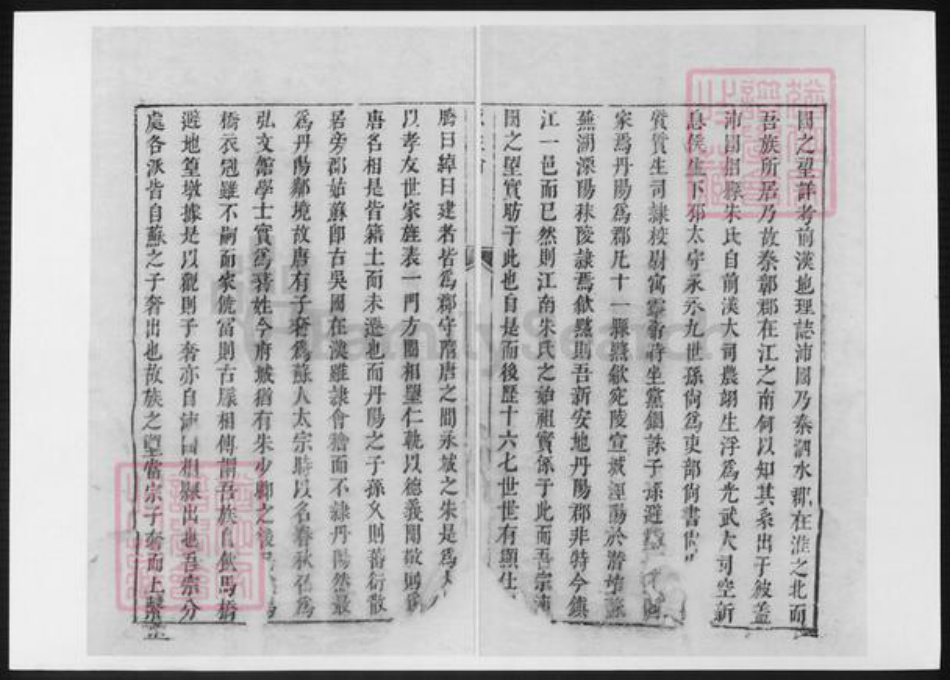 國之望詳考前漢地理誌沛國乃秦泗水郡在淮之北而
吾族所居乃故秦鄣郡在江之南何以知其系出于彼蓋
沛國相縣朱氏自前漢大司農翊生浮為光武大司空新
息侯生下邳太守永永九世孫尚為吏部尚書尚
質質生司隸校尉寓寓坐黨錮誅子孫避
家焉丹陽為郡凡十一縣黟歙宛陵宣城涇
蕪湖溧陽秣陵隸焉歙黟則吾新安地丹陽郡非特今鎮
江一邑而已然則江南朱氏之始祖實係于此而吾宗沛
國之望實昉于此也自是而後歷十六七世世有顯仕
騰曰綽曰建者皆為郡守隋唐之間永城之朱是為
以孝友世家旌表一門方圖相望仁軌以德義聞敬則為
唐名相是皆籍土而未遷也而丹陽之子孫久則蕃衍散
居旁郡姑蘇即古吳國在漢雖隸會稽而不隸丹陽然最
為丹陽鄰境故唐有子奢為蘇人太宗時以名春秋召為
弘文館學士實為著姓今府城猶有朱少卿之後
橋衣冠雖不嗣而家猶富則古縣相傳謂吾族自飲馬橋
避地篁墩據是以觀則子奢亦自沛國相縣出也吾宗分
處各派皆自蘇之子奢出也故族之望當宗子奢而上繫